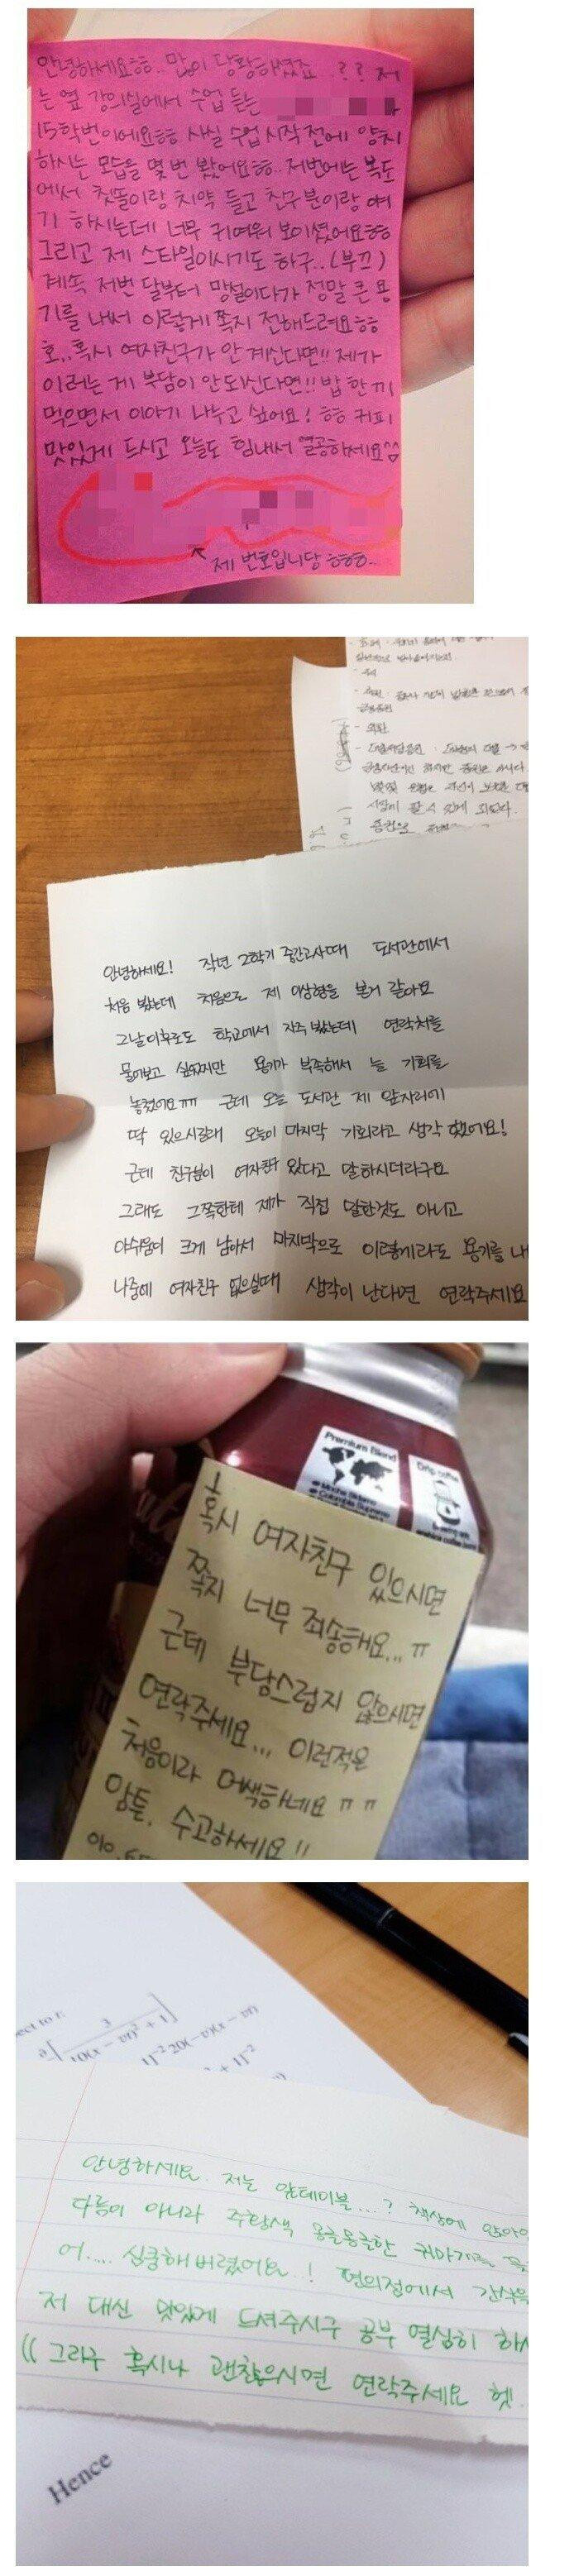 안녕하세요ㅎㅎ.. 많이 당황하셨죠..?? 저
는 옆 강의실에서 수업 듣는
15학번이에요ㅎㅎ 사실 수업 시작 전에 양치
하시는 모습을 몇 번 봤어요ㅎㅎ.. 저번에는 복도
에서 칫똘이랑 치약 들고 친구분이랑 얘
기 하시는데 너무 귀여워 보이셨어요ㅎㅎ
그리고 제 스타일이시기도 하구..(부끄)
계속 저번 달부터 망설이다가 정말 큰 용
기를 내서 이렇게 쪽지 전해드려요ㅎㅎ
호..혹시 여자친구가 안 계신다면!! 제가
이러는 게 부담이 안되신다면!! 밥 한 끼
먹으면서 이야기 나누고 싶어요! ㅎㅎ 커피
맛있게 드시고 오늘도 힘내서 열공하세요^^
제 번호입니당 ㅎㅎㅎ..
안녕하세요! 작년 2학기 중간고사때 도서관에서
처음 봤는데 처음으로 제 이상형을 본거 같아요
그날 이후로도 학교에서 자주 봤는데 연락처를
물어보고 싶었지만 용기가 부족해서 늘 기회를
놓쳤어요ㅠㅠ 근데 오늘 도서관 제 앞자리에
딱 있으시길래 오늘이 마지막 기회라고 생각 했어요!
근데 친구분이 여자친구 있다고 말하시더라구요
그래도 그쪽한테 제가 직접 말한것도 아니고
아쉬움이 크게 남아서 마지막으로 이렇게라도 용기를 내
나중에 여자친구 없으실때 생각이 난다면 연락주세요
Premium Blend
혹시 여자친구 있으시면
쪽지 너무 죄송해요...ㅠ
근데 부담스럽지 않으시면
연락주세요... 이런적은
처음이라 어색하네요 ㅠㅠ
암튼, 수고하세요!!
010.
안녕하세요. 저는 앞테이블...? 책상에 앉아
다름이 아니라 주황색 몽글몽글한 귀마개를
어.... 심쿵해버렸어요..! 편의점에서 간식을
저 대신 맛있게 드셔주시구 공부 열심히 하
(( 그리구 혹시나 괜찮으시면 연락주세요 헷!
Hence